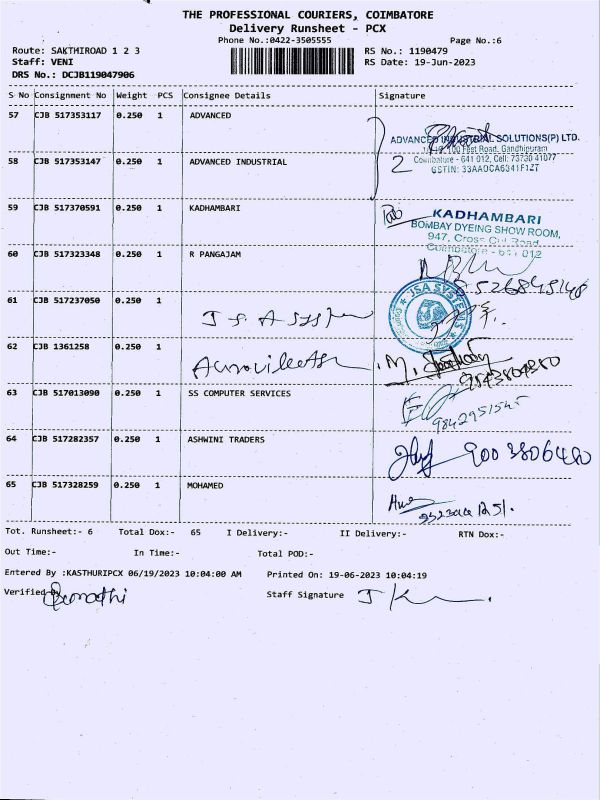 THE PROFESSIONAL COURIERS, COIMBATORE
Delivery Runsheet - PCX
Phone No.:0422-3505555
Page No.:6
Route: SAKTHIROAD 1 2 3
RS No.: 1190479
Staff: VENI
RS Date: 19-Jun-2023
DRS No.: DCJB119047906
S No Consignment No Weight PCS Consignee Details Signature
57 CJB 517353117 0.250 1 ADVANCED
ADVANCED INDUSTRIAL SOLUTIONS(P) LTD.
100 Feet Road, Gandhipuram
58 CJB 517353147 0.250 1 ADVANCED INDUSTRIAL 2
Coimbatore - 641 012, Cell: 73730 41077
GSTIN: 33AAOCA6341F1ZT
59 CJB 517370591 0.250 1 KADHAMBARI
KADHAMBARI
BOMBAY DYEING SHOW ROOM,
947, Cross Cut Road,
Coimbatore - 641 012
60 CJB 517323348 0.250 1 R PANGAJAM
61 CJB 517237050 0.250 1
JSA SYSTEMS
62 CJB 1361258 0.250 1
63 CJB 517013090 0.250 1 SS COMPUTER SERVICES
64 CJB 517282357 0.250 1 ASHWINI TRADERS
65 CJB 517328259 0.250 1 MOHAMED
Tot. Runsheet:- 6 Total Dox:- 65 I Delivery:- II Delivery:- RTN Dox:-
Out Time:- In Time:- Total POD:-
Entered By :KASTHURIPCX 06/19/2023 10:04:00 AM Printed On: 19-06-2023 10:04:19
Verified Staff Signature